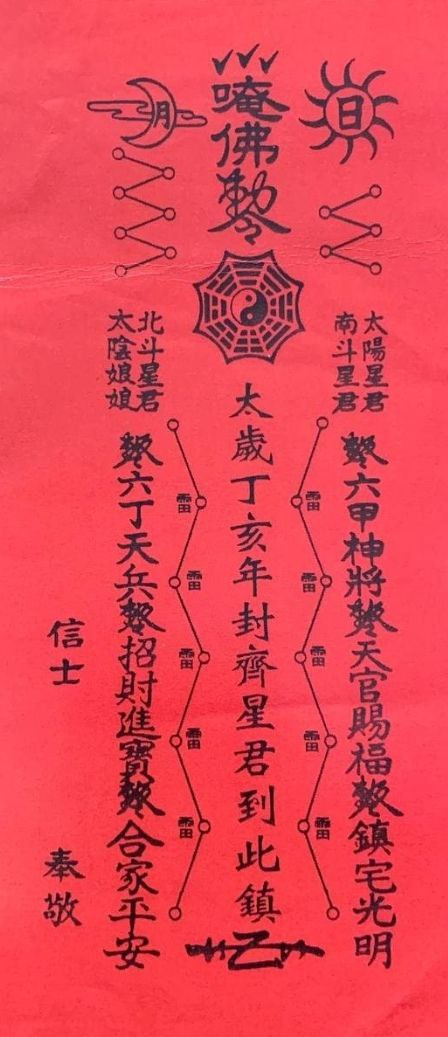 日
太陽星君
南斗星君
敕六甲神將敕天官賜福敕鎮宅光明
雷
雷
雷
雷
雷
唵佛勅令
太歲丁亥年封齊星君到此鎮
月
北斗星君
太陰娘娘
雷
雷
雷
雷
雷
敕六丁天兵敕招財進寶敕合家平安
信士 奉敬